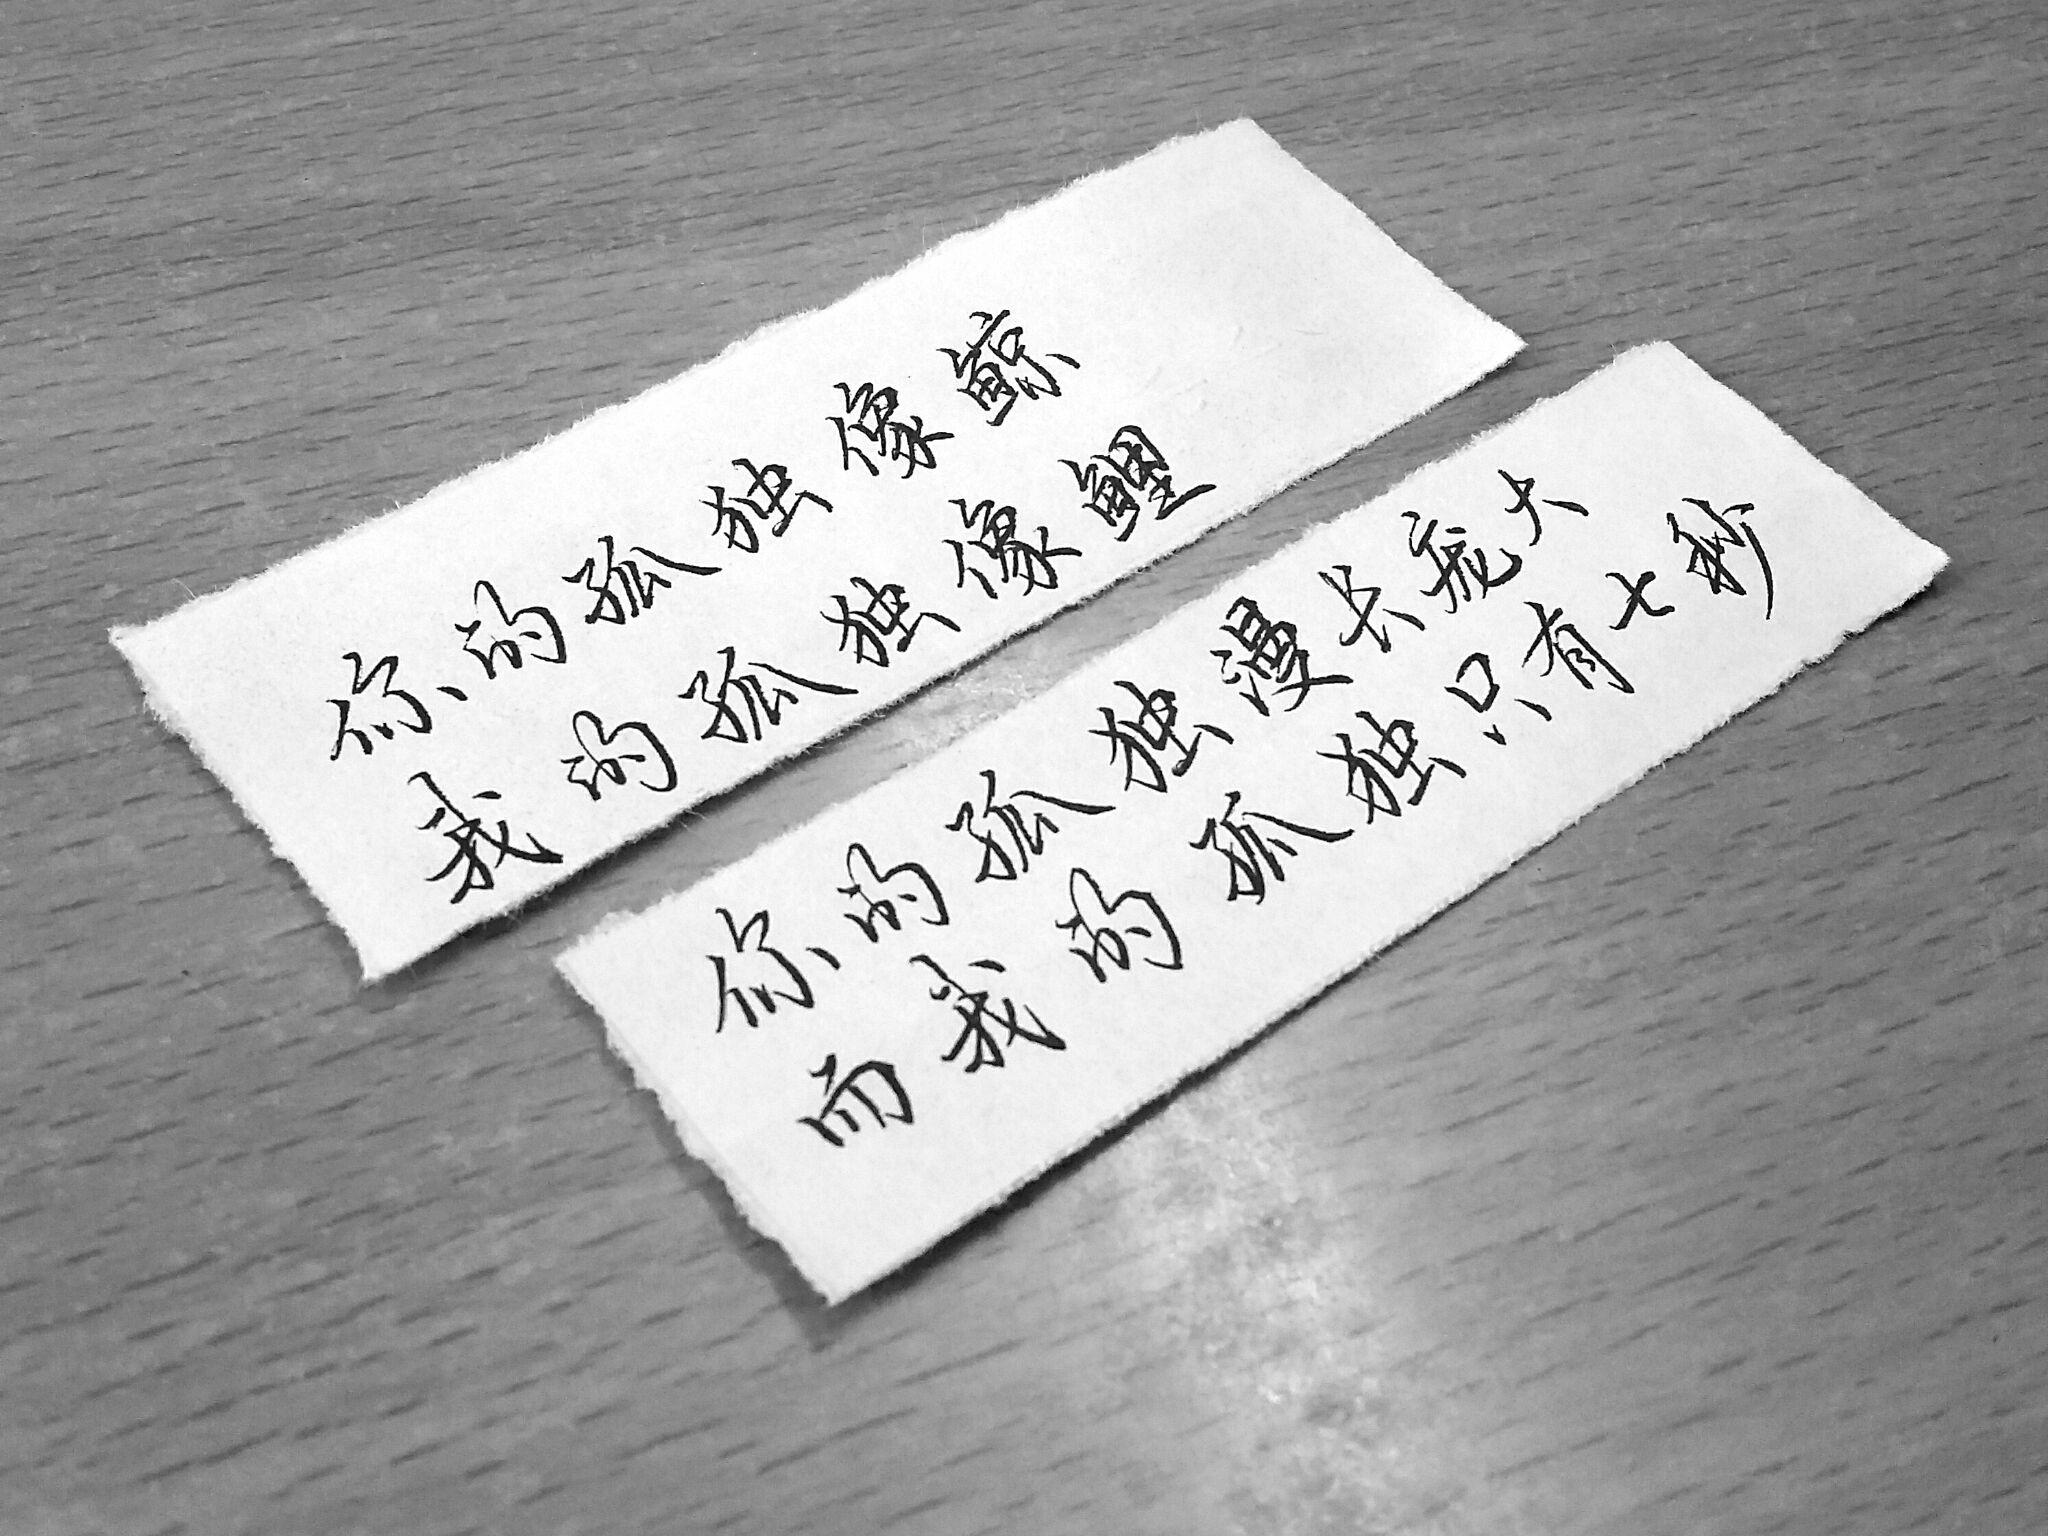 你的孤独像鲸
我的孤独像鲤
你的孤独漫长庞大
而我的孤独只有七秒